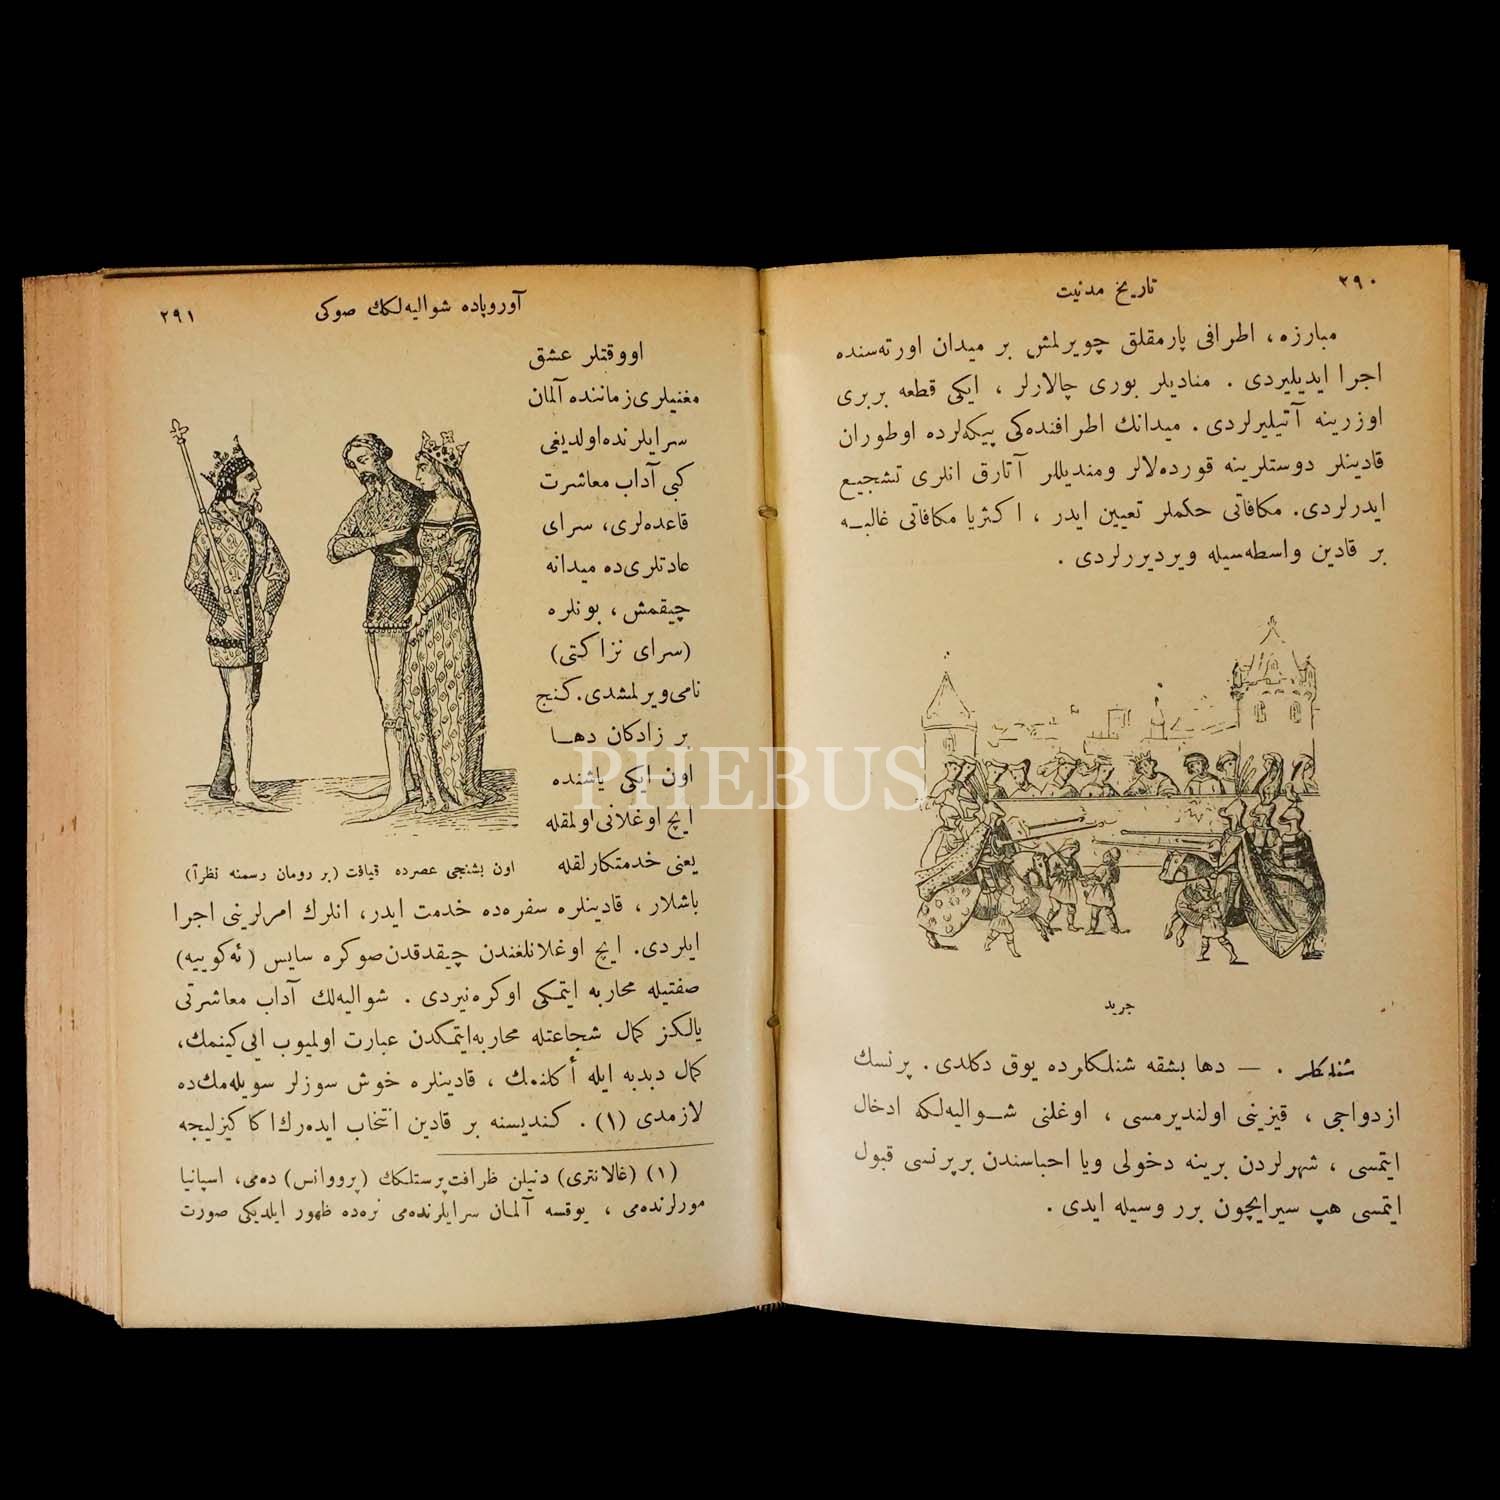 ٢٩٠
تاريخ مدنيت
مبارزه، اطرافى پارمقلق چويرلمش بر ميدان اورته‌سنده
اجرا ايديليردى . مناديلر بورى چالارلر ، ايكى قطعه بربرى
اوزرينه آتيليرلردى . ميدانك اطرافنده‌كى پيكه‌لرده اوطوران
قادينلر دوستلرينه قورده‌لالر ومنديللر آتارق انلرى تشجيع
ايدرلردى. مكافاتى حكملر تعيين ايدر ، اكثريا مكافاتى غالبه
بر قادين واسطه‌سيله ويرديررلردى .
جريد
شنلكلر . — دها بشقه شنلكلرده يوق دكلدى . پرنسك
ازدواجى ، قيزينى اولنديرمسى ، اوغلنى شواليه‌لكه ادخال
ايتمسى ، شهرلردن برينه دخولى ويا احباسندن برپرنسى قبول
ايتمسى هپ سيرايچون برر وسيله ايدى .
آوروپاده شواليه‌لكك صوكى
٢٩١
اووقتلر عشق
مغنيلرى زماننده آلمان
سرايلرنده اولديغى
كبى آداب معاشرت
قاعده‌لرى، سراى
عادتلرى‌ده ميدانه
چيقمش ، بونلره
(سراى نزاكتى)
نامى ويرلمشدى. كنج
بر زادكان دها
اون ايكى ياشنده
ايچ اوغلانى اولمقله
يعنى خدمتكارلقله
اون بشنجى عصرده قيافت (بر رومان رسمنه نظراً)
باشلار ، قادينلره سفره‌ده خدمت ايدر، انلرك امرلرينى اجرا
ايلردى. ايچ اوغلانلغندن چيقدقدن صوكره سايس (ئه‌كوييه)
صفتيله محاربه ايتمكى اوكره‌نيردى . شواليه‌لك آداب معاشرتى
يالكز كمال شجاعتله محاربه ايتمكدن عبارت اولميوب ايى كينمك،
كمال دبدبه ايله أكلنمك ، قادينلره خوش سوزلر سويله‌مك‌ده
لازمدى (١) . كنديسنه بر قادين انتخاب ايده‌رك اكا كيزليجه
(١) (غالانترى) دنيلن ظرافت پرستلكك (پرووانس) ده‌مى، اسپانيا
مورلرنده‌مى ، يوقسه آلمان سرايلرنده‌مى نره‌ده ظهور ايلديكى صورت
PHEBUS